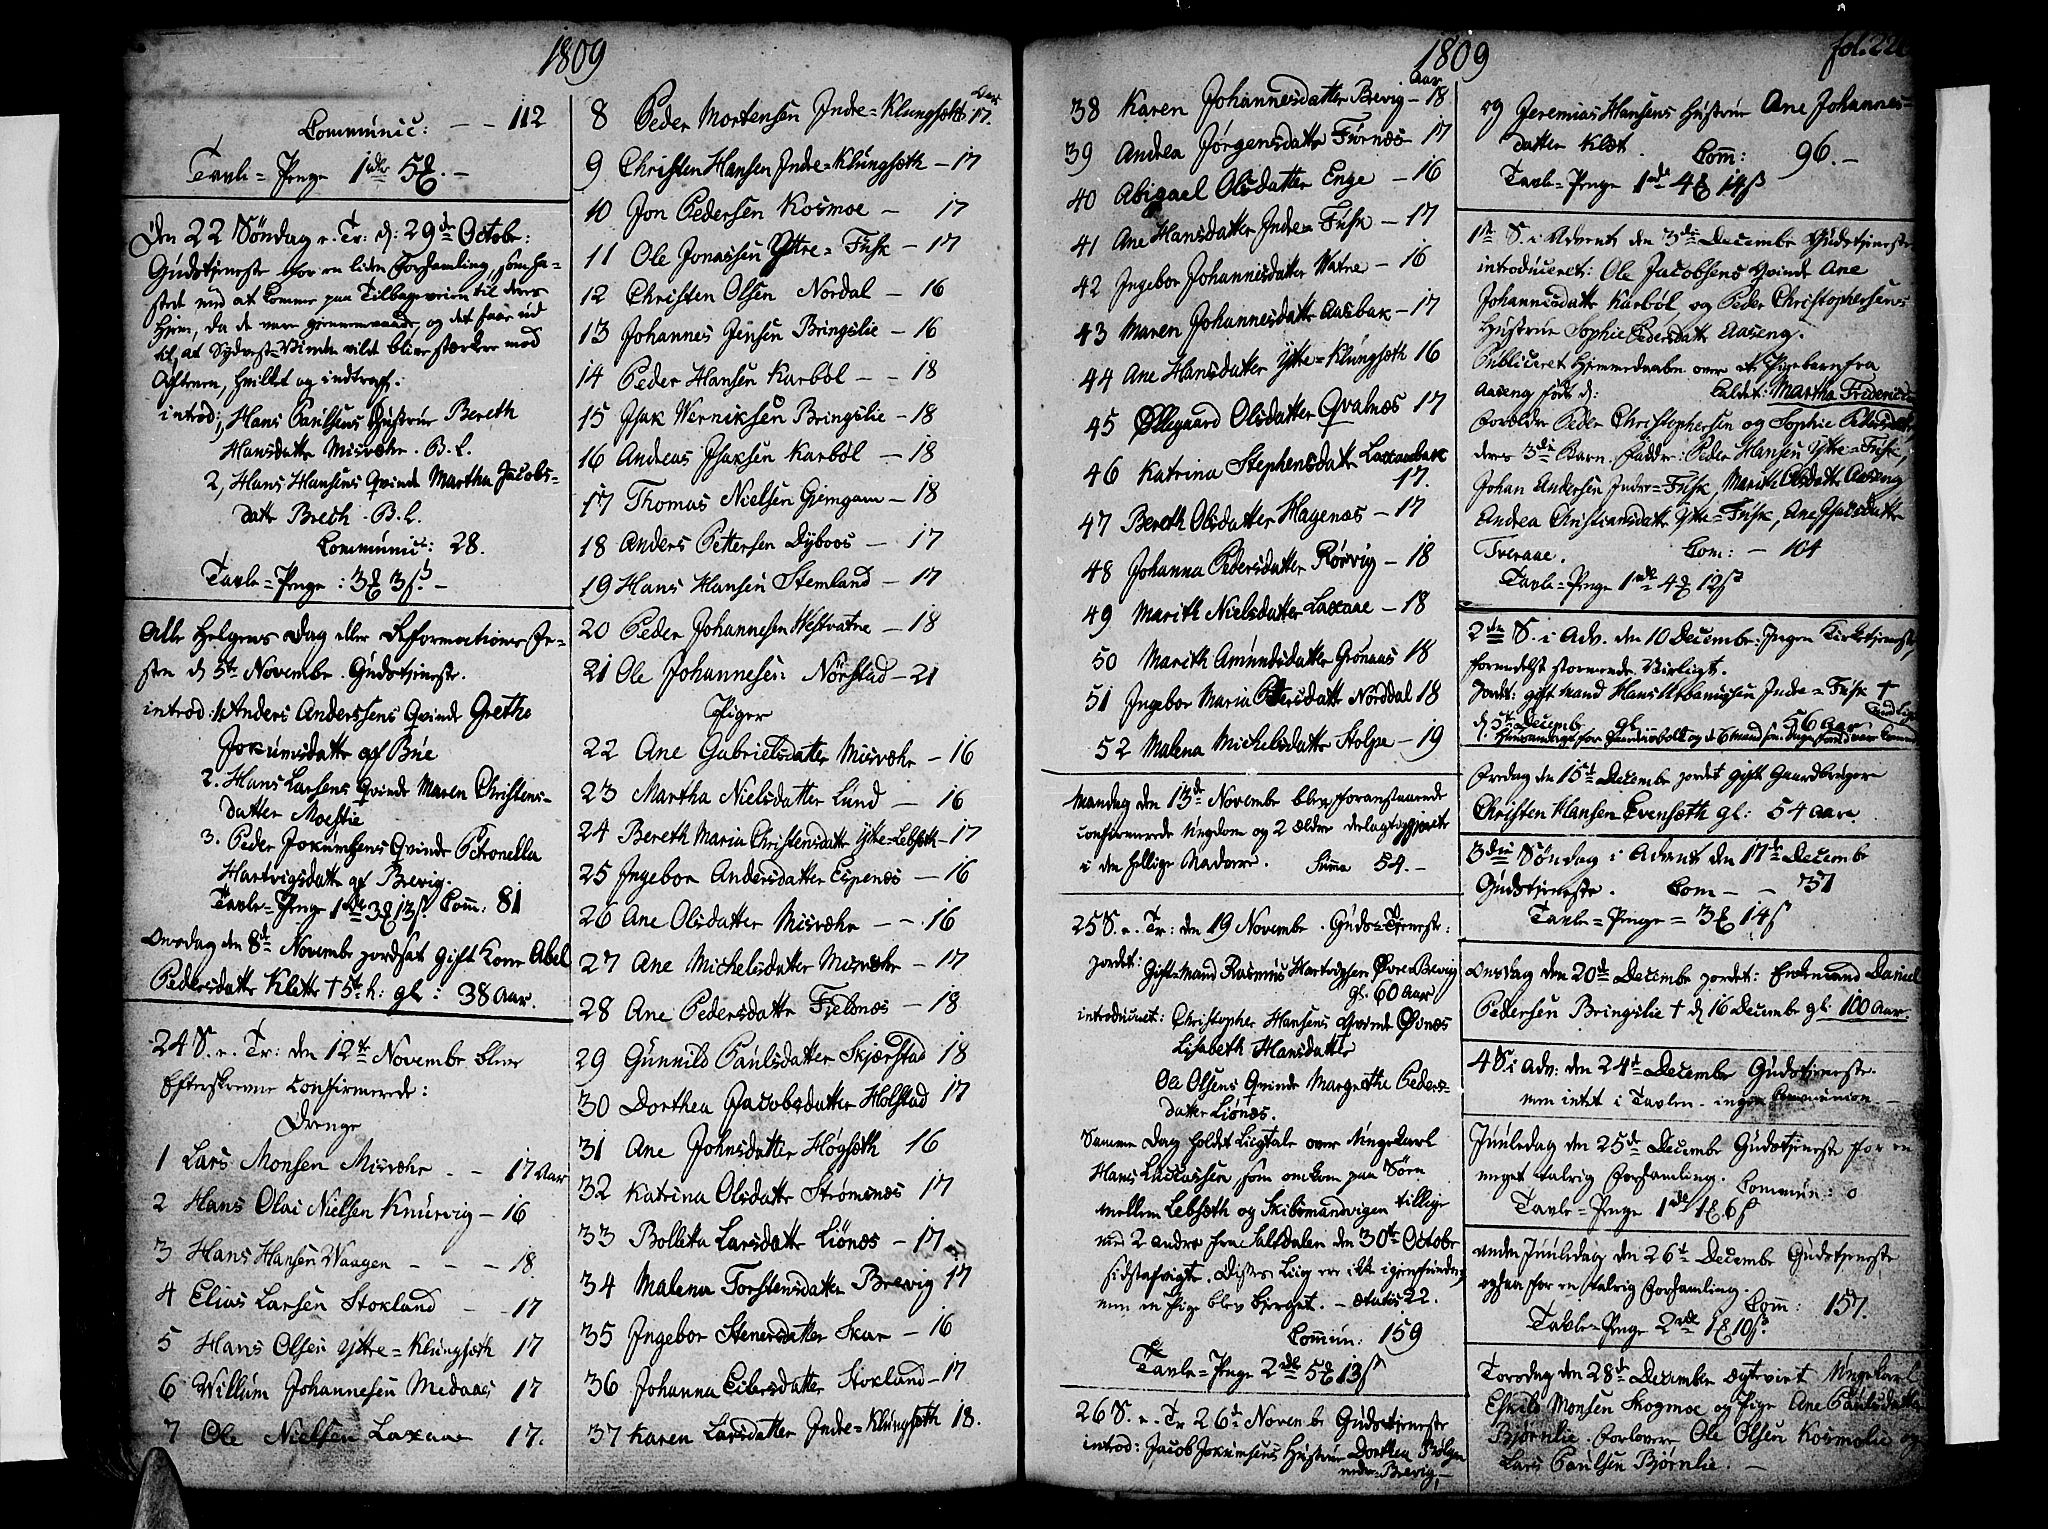 1809
Communic: - - 112
Tavle-Penge 1 rdlr 5 ℔. -
Den 22 Søndag e. Tr: d: 29de Octobr:
Gudstjeneste for en liden Forsamling, som ha-
stede med at komme paa Tilbageveien til deres
Hjem, da de vare giennemvaade, og det saae ud
til, at Sydvest-Vinden vilde blive stærkere mod
Aftenen, hvilket og indtraff.
introd: 1, Hans Paulsens Hustrue Bereth
Hansdatter Misvæhr. B. L.
2, Hans Hansens Qvinde Martha Jacobs-
datter Breth. B. L.
Communic: 28.
Tavle-Penge: 3 ℔ 3 ß. -
Alle Helgens Dag eller Reformations Fe-
sten d 5te Novembr. Gudstjeneste.
introd: 1, Anders Anderssens Qvinde Grethe
Jokumsdatter af Bue
2. Hans Larsens Qvinde Maren Christens-
datter Moestie
3. Peder Jokumsens Qvinde Petronella
Hartvigsdatter af Brevig.
Tavle-Penge 1 rdlr 3 ℔ 13 ß. Com: 81
Onsdag den 8de Novembr jordsat gift Kone Abel
Pedersdatter Klette † 5te h: gl: 38 Aar.
24 S. e. Tr: den 12te Novembr bleve
Efterskrevne Confirmerede:
Drenge
1 Lars Monsen Misvæhr. - - 17 Aar
2 Hans Olai Nielsen Knurvig - 16
3 Hans Hansen Waagen - - - 18
4 Elias Larsen Stokland - - 17
5 Hans Olsen Yttre-Klungsæth 17
6 Willum Johannesen Medaas 17
7 Ole Nielsen Laxaae 17.
8 Peder Mortensen Indre-Klungsæth 17. Aar
9 Christen Hansen Indre-Klungsæth - 17
10 Jon Pedersen Kosmoe - 17
11 Ole Jonassen Yttre-Fusk - 17
12 Christen Olsen Nordal - 16
13 Johannes Jensen Bringslie - 16
14 Peder Hansen Karbøl - - 18
15 Isak Werniksen Bringslie - 18
16 Andreas Isaksen Karbøl - 18
17 Thomas Nielsen Giemgam - 18
18 Anders Pettersen Dyboos - 17
19 Hans Hansen Stemland - 17
20 Peder Johannesen Westvatne - 18
21 Ole Johannesen Nørstad - 21
Piger
22 Ane Gabrielsdatter Misvæhr - 16
23 Martha Nielsdatter Lund - 16
24 Bereth Maria Christensdatter Yttre-Lebsæth - 17
25 Ingebor Andersdatter Espenæs - 16
26 Ane Olsdatter Misvæhr - - 16
27 Ane Michelsdatter Misvæhr - 17
28 Ane Pedersdatter Fielnæs - 18
29 Gunnild Paulsdatter Skjærstad 18
30 Dorthea Jacobsdatter Holstad 17
31 Ane Johnsdatter Høgsæth 16
32 Katrina Olsdatter Strømsnæs 17
33 Bolleta Larsdatter Liønæs - 17
34 Malena Torstensdatter Brevig 17
35 Ingebor Stenersdatter Skar - 16
36 Johanna Eilersdatter Stokland - 17
37 Karen Larsdatter Indre-Klungsæth 18.
1809
fol. 22
38 Karen Johannesdatter Brevig - 18 Aar
39 Andrea Jørgensdatter Furnæs - 17
40 Abigael Olsdatter Enge - 16
41 Ane Hansdatter Indre-Fusk - 17
42 Ingebor Johannesdatter Vatne - 16
43 Maren Johannesdatter Aasbak - 17
44 Ane Hansdatter Yttre-Klungsæth 16
45 Øllegaard Olsdatter Qvalnæs 17
46 Katrina Stephensdatter Laxaabak
17.
47 Bereth Olsdatter Hagenæs - 17
48 Johanna Pedersdatter Rørvig - 18
49 Marith Nielsdatter Laxaae - 18
50 Marith Amundsdatter Grønaas 18
51 Ingebor Maria Peersdatter Norddal 18
52 Malena Michelsdatter Stolpe - 19
Mandag den 13de Novembr blev foranstaaende
confirmerede Ungdom og 2 ældre deelagtiggjorte
i den hellige Nadvere. Suma 54. -
25 S. e. Tr: den 19 Novembr. Guds-Tjeneste:
jordet: Gift-Mand Rasmus Hartvigsen Øvre Brevig
gl. 60 Aar
introduceret: Christopher Hansens Qvinde Øsnæs
Lisabeth Hansdatter
Ole Olsens Qvinde Margrethe Peders-
datter Liønæs.
Samme Dag holdet Liigtale over Ungekarl
Hans Lucassen, som omkom paa Søen
mellem Lebsæth og Skibsmandvigen tillige
med 2 andre fra Saltdalen den 30te October
sidstafvigte. Disses Liig ere ikke igienfundne,
men en Pige blev bierget. - ætatis 22.
Commun: 159
Tavle-Penge 2 rdl 5 ℔ 13 ß
26 S. e. Tr 26de Novembr Gudstjeneste
introd: Jacob Jokumsens Hustrue Dorthea
nedre-Brevig,
59 Jeremias Hansens Hustrue Ane Johannes-
datter Klet. Com: 96. -
Tavle-Penge 1 rdl 4 ℔ 14 ß
1te S. i Advent den 3die Decembr Gudstjeneste
introduceret: Ole Jacobsens Qvinde Ane
Johannisdatter Karbøl og Peder Christophersens
Hustrue Sophie Pedersdatter Aaseng.
Publiceret Hjemmedaaben over et Pigebarn fra
Aaseng født d: kaldet: Martha Frederic
Forældre Peder Christophersen og Sophie Pedersdatter,
deres 3die Barn. Faddre: Peder Hansen Yttre-Fusk,
Johan Andersen Indre-Fusk, Marith Olsdatter Aaseng
Andrea Christiansdatter Yttre-Fusk, Ane Isacsdatter
Tveraae. Com: - 104
Tavle-Penge 1 rdl 4 ℔ 12 ß
2den S. i Adv. den 10 Decembr: Ingen Kirketjeneste,
formedelst stormende Veirligt.
Jordet: gift Mand Hans Urbanussen Indre-Fusk †
d 5te Decembr gl. 56 Aar
Fredag den 15de Decembr jordet gift Gaardbruger
Christen Hansen Evensæth gl: 54 Aar.
3die Søndag i Advent den 17de Decembr
Gudstjeneste. Com - - 37
Tavle-Penge = 3 ℔ 14 ß
Onsdag den 20de Decembr jordet: Enkemand Daniel
Pedersen Bringslie † d 16 Decembr gl: 100 Aar.
4 S. i Adv: den 24de Decembr Gudstjeneste.
men intet i Tavlen. ingen Communion -
Juuledag den 25de Decembr Gudstjeneste for en
meget talrig Forsamling. Commun: 0
Tavle-Penge 1 rdl 1 ℔ 6 ß
Anden Juuledag den 26de Decembr Gudstjeneste
ogsaa for en talrig Forsamling. Com: 157.
Tavle-Penge 2 rdl 1 ℔ 10 ß.
Torsdag den 28de Decembr egteviet Ungekarl
Eskild Monsen Skogmoe og Pige Ane Paulsdatter
Bjørnlie. Forlovere Ole Olsen Kosmolie og
Lars Paulsen Bjørnlie. -